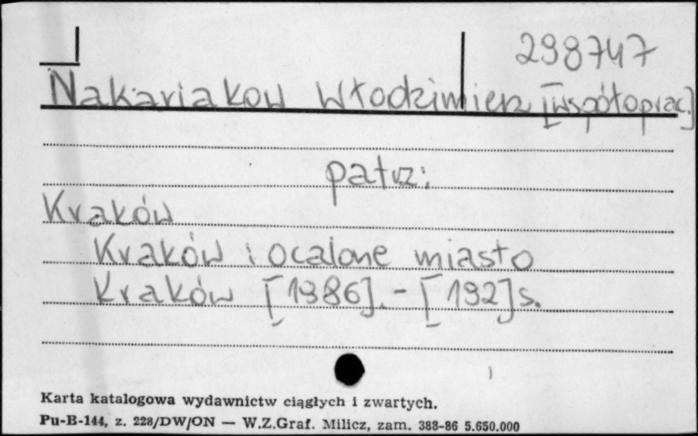 298747
Nakariakow Włodzimierz [współoprac.]
patrz:
Kraków
Kraków i ocalone miasto
Kraków [1986]. - [192] s.
Karta katalogowa wydawnictw ciągłych i zwartych.
Pu-B-144, z. 228/DW/ON — W.Z.Graf. Milicz, zam. 388-86 5.650.000